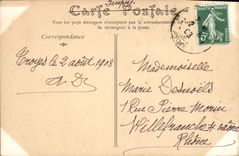 Carte Postale
Tous les pays étrangers n'acceptent pas la correspondance
au recto
Correspondance
Troyes le 2 août 1908
Mademoiselle
Marie Desnoëls
1 Rue Pierre Morin
Villefranche s/ Saône
Rhône